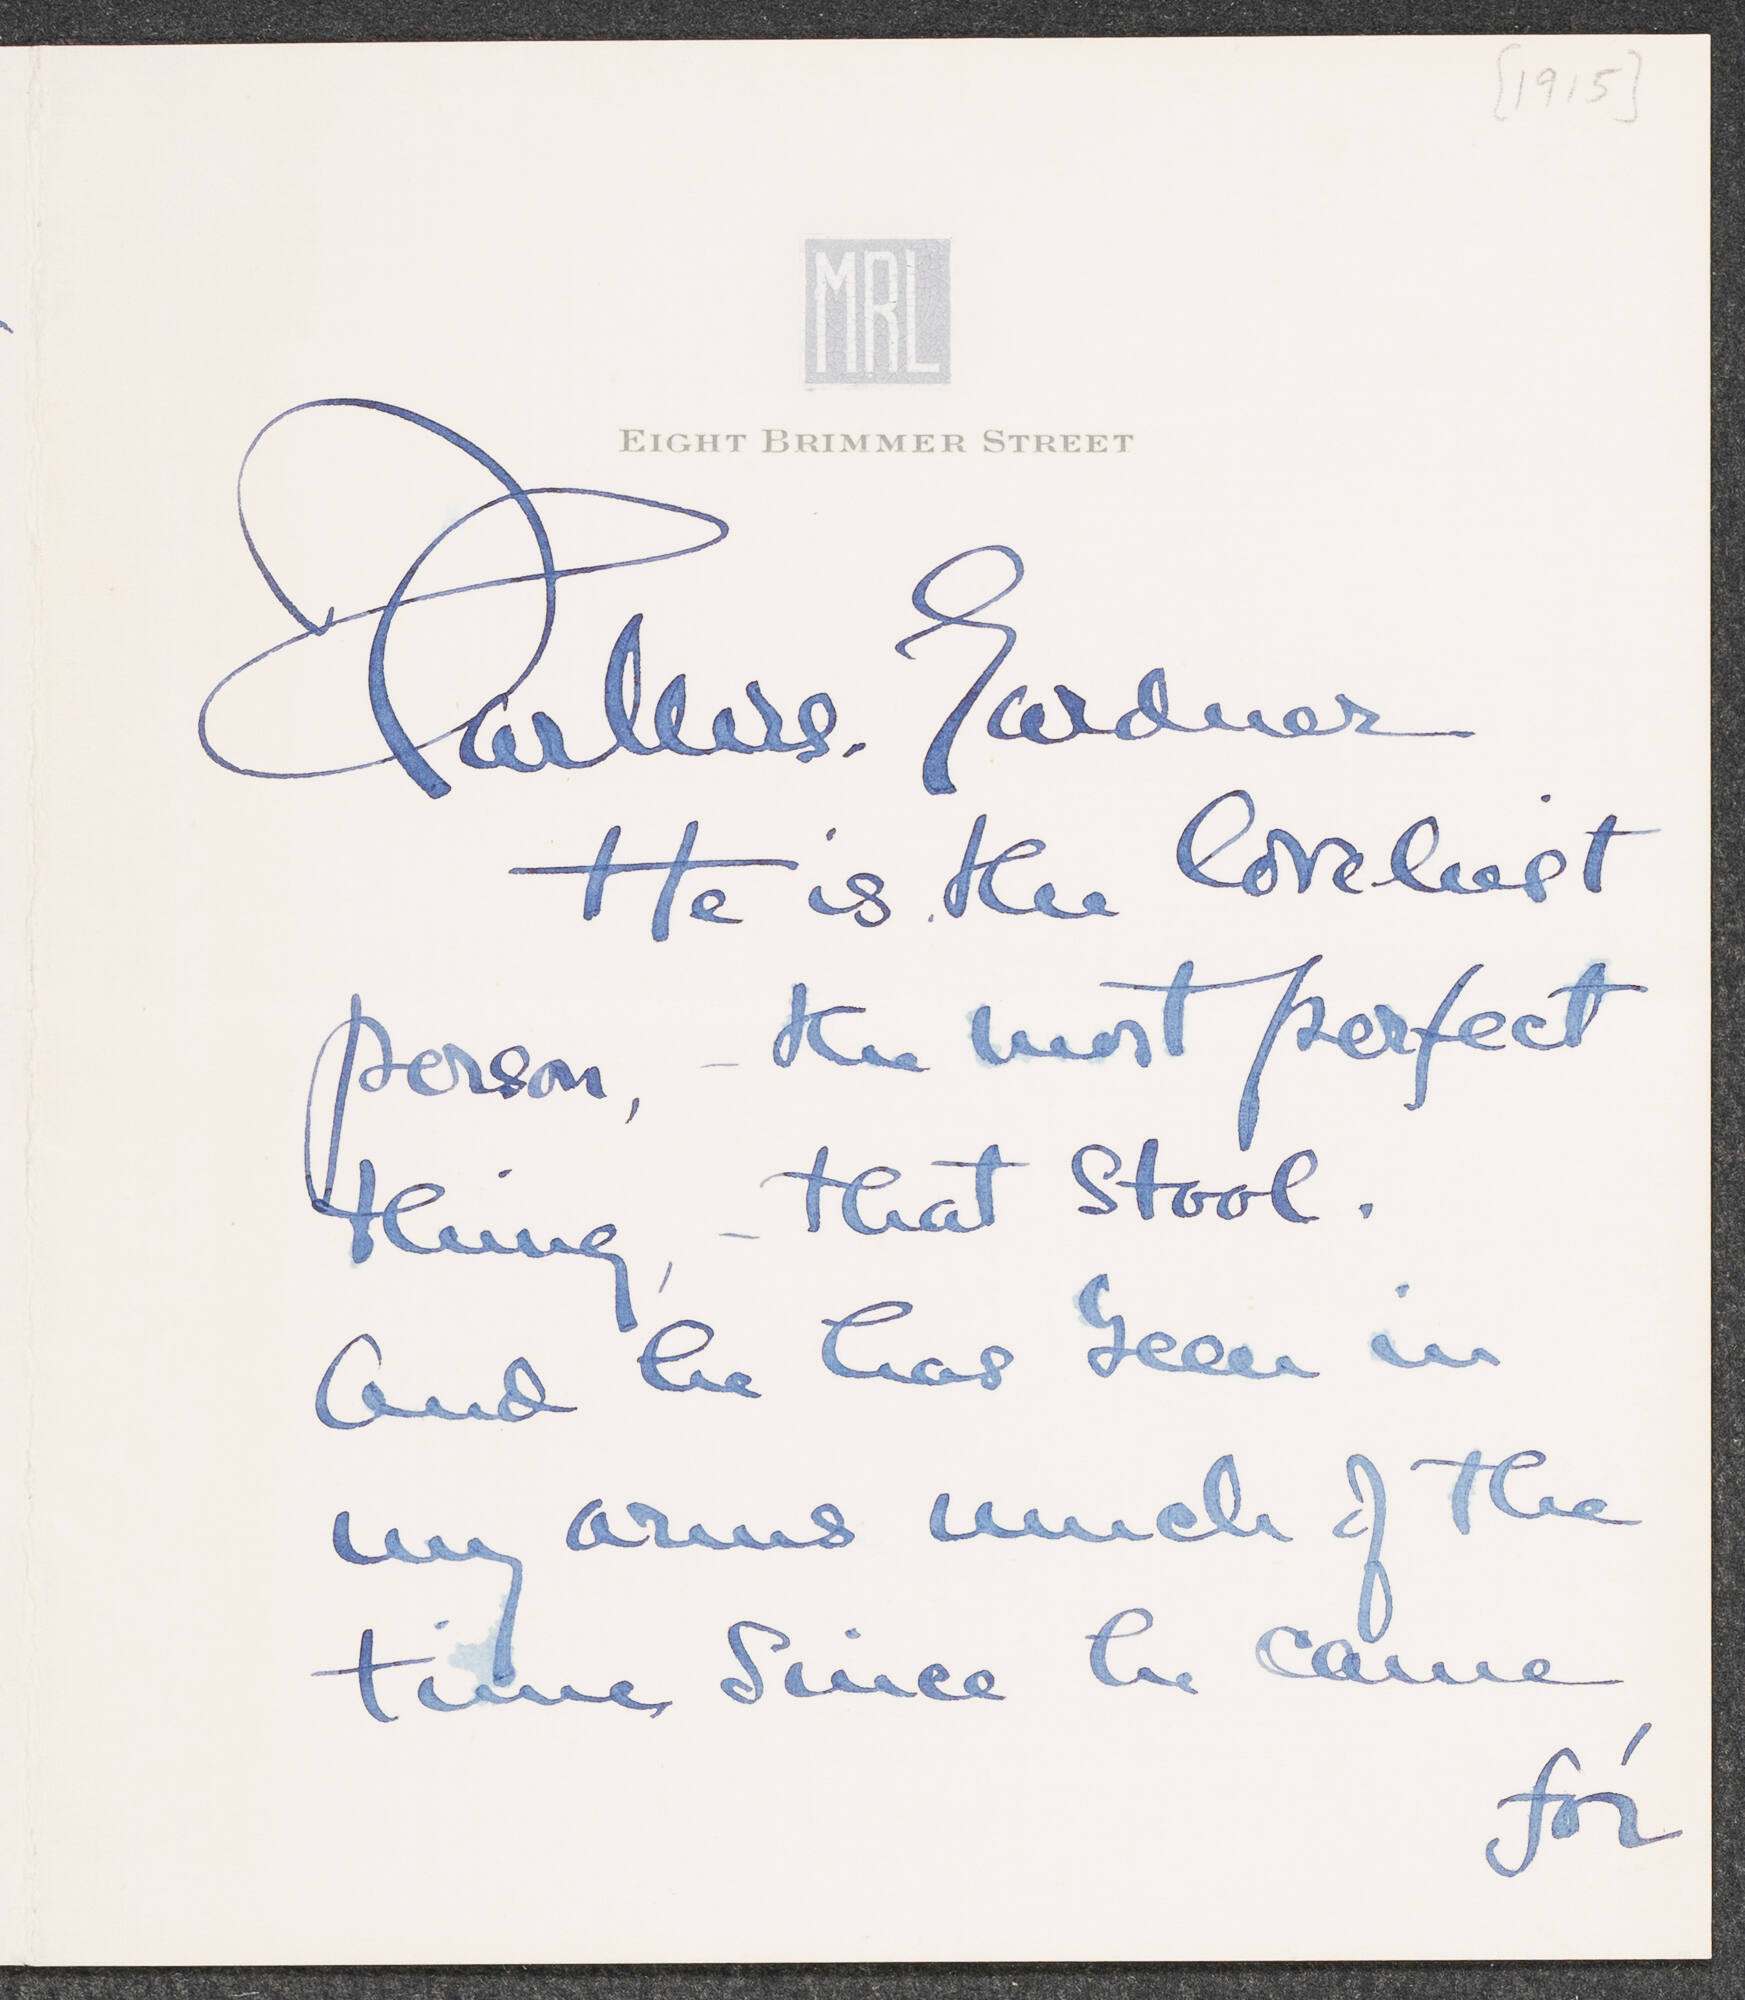 [1915]
MRL
EIGHT BRIMMER STREET
Dear Mrs. Gardner
He is the loveliest
person, – the most perfect
thing, – that Stool.
And he has been in
my arms much of the
time, since he came
for